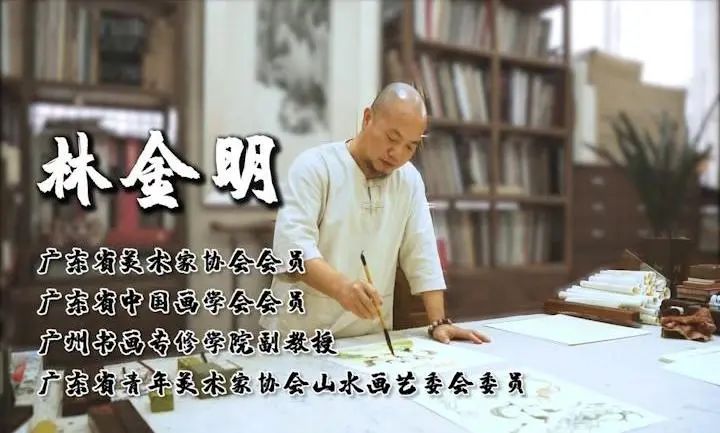 林金明
广东省美术家协会会员
广东省中国画学会会员
广州书画专修学院副教授
广东省青年美术家协会山水画艺委会委员